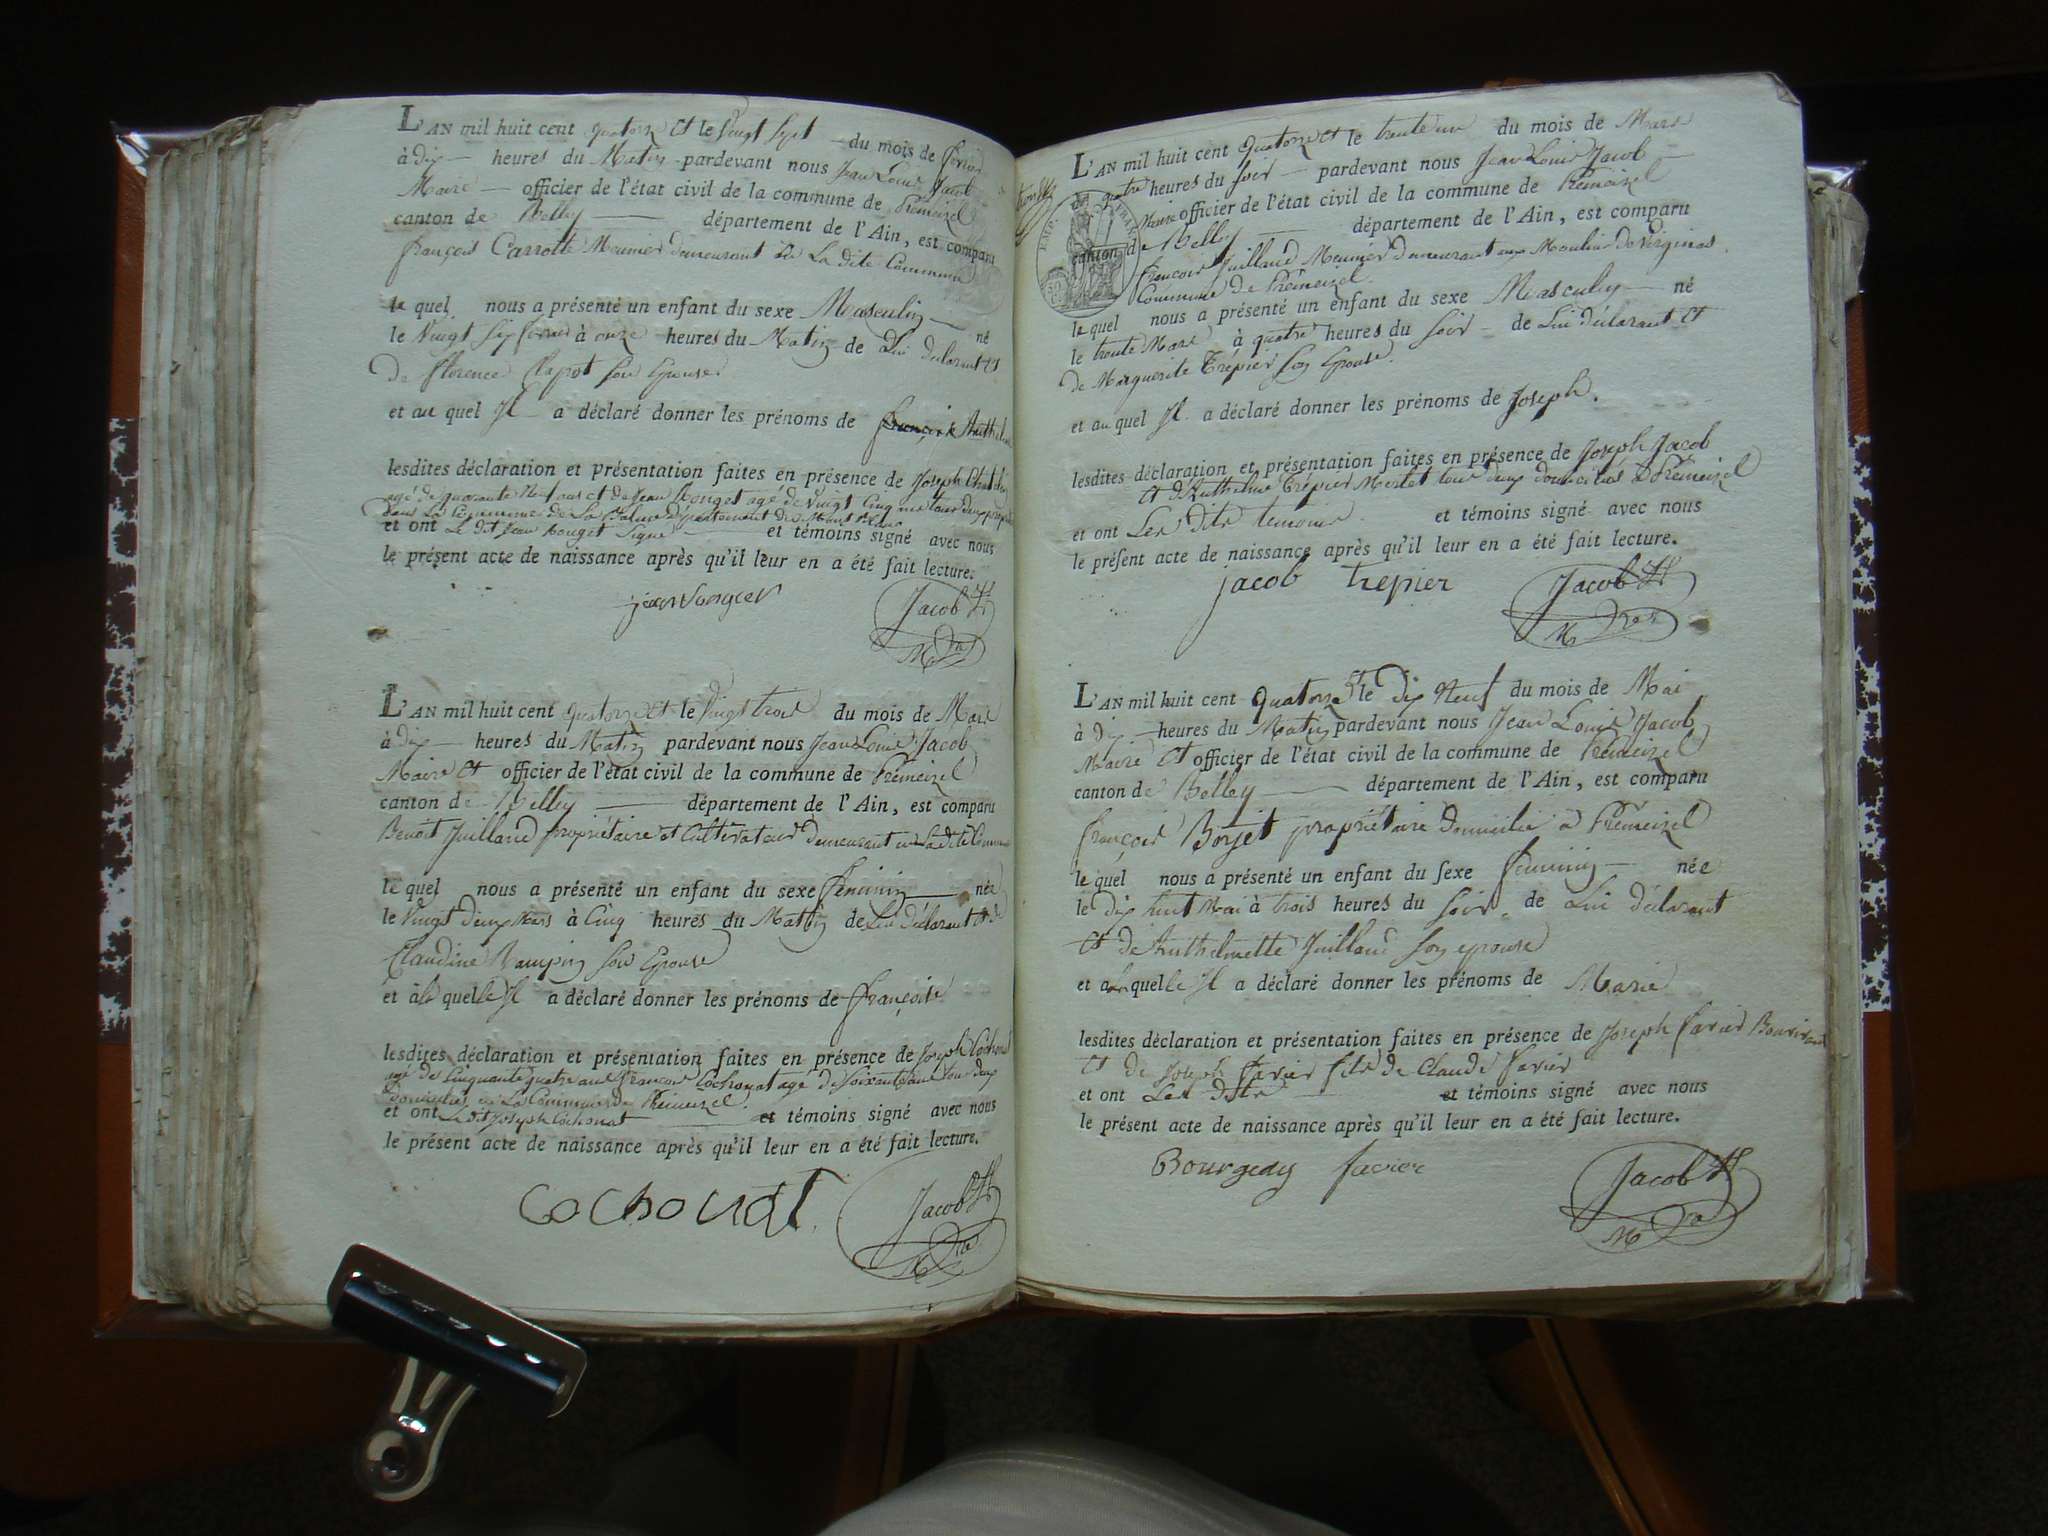 L'AN mil huit cent quatorze Et le vingt Sept du mois de fevrier
à dix heures du Matin pardevant nous Jean Louis Jacob
Maire officier de l'état civil de la commune de Prémeizel
canton de Belley département de l'Ain, est comparu
françois Carrotte Meunier demeurant La dite Commune
le quel nous a présenté un enfant du sexe Masculin né
le Vingt Six fevrier à onze heures du Matin de Lui déclarant et
de florence Clapot Son Epouse
et au quel Il a déclaré donner les prénoms de françois Anthelme
lesdites déclaration et présentation faites en présence de Joseph
agé de quarante Neuf ans et de Jean Songet agé de Vingt Cinq ans tous deux
dans La Commune de La Balme département du Mont Blanc
et ont Le dit Jean Songet Signé et témoins signé avec nous
le présent acte de naissance après qu'il leur en a été fait lecture.
jean Jacob
M
L'AN mil huit cent quatorze Et le Vingt trois du mois de Mars
à dix heures du Matin pardevant nous Jean Louis Jacob
Maire Et officier de l'état civil de la commune de Prémeizel
canton de Belley département de l'Ain, est comparu
Benoit Juilland propriétaire et Cultivateur demeurant Ladite Commune
le quel nous a présenté un enfant du sexe feminin née
le Vingt deux Mars à Cinq heures du Matin de Lui déclarant Et de
Claudine Son Epouse
et à la quelle Il a déclaré donner les prénoms de françoise
lesdites déclaration et présentation faites en présence de Joseph Cochonat
agé de Cinquante quatre ans françois Cochonat agé de Soixante ans tous deux
Domiciliés en La Commune de Prémeizel.
et ont Ledit Joseph Cochonat et témoins signé avec nous
le présent acte de naissance après qu'il leur en a été fait lecture.
Cochonat Jacob
M
L'AN mil huit cent Quatorze Et le trente un du mois de Mars
à quatre heures du Soir pardevant nous Jean Louis Jacob
Maire officier de l'état civil de la commune de Prémeizel
canton de Belley département de l'Ain, est comparu
françois Juilland Meunier demeurant aux Moulins de Virginas.
Commune de Prémeizel.
le quel nous a présenté un enfant du sexe Masculin né
le trente Mars à quatre heures du Soir de Lui déclarant Et
de Marguerite Trépier Son Epouse.
et au quel Il a déclaré donner les prénoms de Joseph.
lesdites déclaration et présentation faites en présence de Joseph Jacob
et d'Anthelme Trépier Merlet tous deux domiciliés à Prémeizel
et ont Les dits temoins et témoins signé avec nous
le présent acte de naissance après qu'il leur en a été fait lecture.
jacob trepier Jacob
M
L'AN mil huit cent Quatorze Et le dix Neuf du mois de Mai
à dix heures du Matin pardevant nous Jean Louis Jacob
Maire Et officier de l'état civil de la commune de Prémeizel
canton de Belley département de l'Ain, est comparu
françois Borjet propriétaire Domicilié à Prémeizel
le quel nous a présenté un enfant du sexe feminin née
le dix huit Mai à trois heures du Soir de Lui déclarant
Et de Anthelmette Juilland Son epouse
et à la quelle Il a déclaré donner les prénoms de Marie
lesdites déclaration et présentation faites en présence de Joseph favier
Et de Joseph favier fils de Claude favier
et ont Les dits et témoins signé avec nous
le présent acte de naissance après qu'il leur en a été fait lecture.
Bourgedy favier Jacob
M